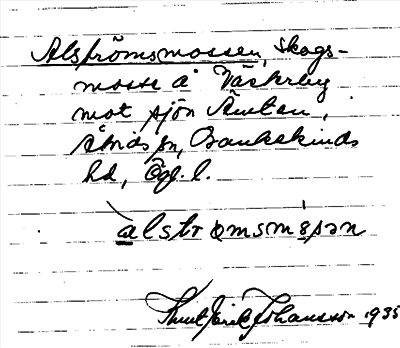 Alströmsmossen, Skogs-
mosse å Väsby
mot sjön Ämten,
Åtvids sn, Bankekinds
hd, Ögl. l.
alstrømsmøsan
Knut Erik Johansson 1935